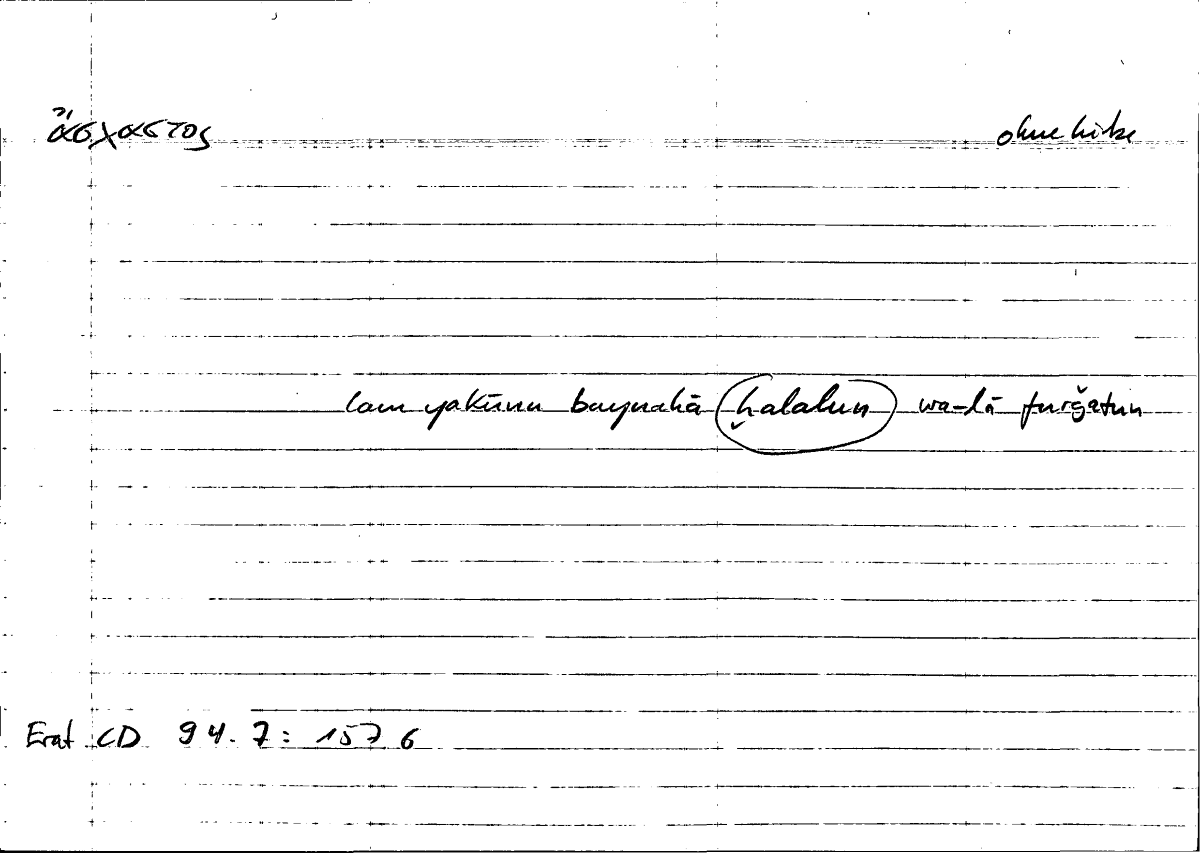 ἄσχαστος ohne hitze
lam yakūnu baynahā ḫalalun wa-lā furǧatun
Erat CD 94.7: 157 6